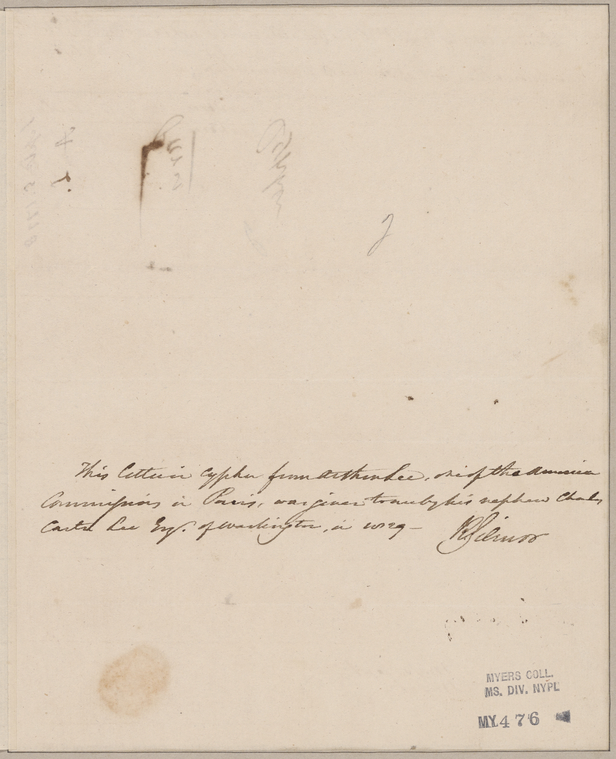 This letter in Cypher from Arthur Lee, one of the America
Commissions in Paris, was given to me by his nephew Charles
Carter Lee Esqr. of Washington, in 1829 —
R Gilmor
MYERS COLL.
MS. DIV. NYPL
MY 476